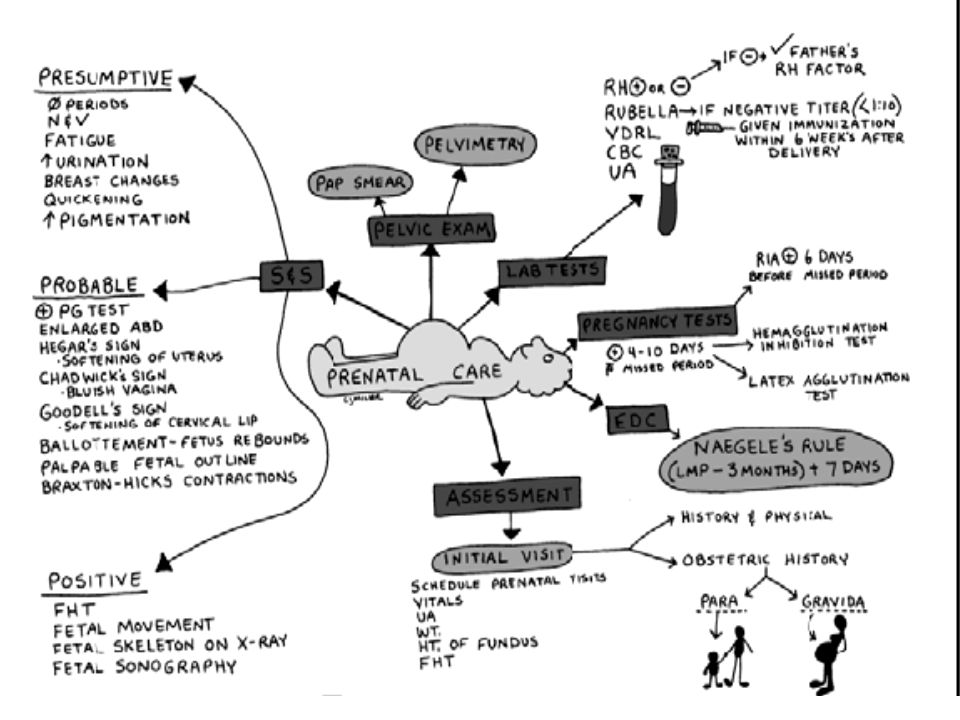 PRESUMPTIVE
Ø PERIODS
N&V
FATIGUE
↑ URINATION
BREAST CHANGES
QUICKENING
↑ PIGMENTATION
S&S
PROBABLE
⊕ PG TEST
ENLARGED ABD
HEGAR'S SIGN
·SOFTENING OF UTERUS
CHADWICK'S SIGN
·BLUISH VAGINA
GOODELL'S SIGN
·SOFTENING OF CERVICAL LIP
BALLOTTEMENT-FETUS REBOUNDS
PALPABLE FETAL OUTLINE
BRAXTON-HICKS CONTRACTIONS
POSITIVE
FHT
FETAL MOVEMENT
FETAL SKELETON ON X-RAY
FETAL SONOGRAPHY
PELVIMETRY
PAP SMEAR
PELVIC EXAM
LAB TESTS
RH⊕ OR ⊖
IF ⊖→ ✓ FATHER'S
RH FACTOR
RUBELLA→IF NEGATIVE TITER (<1:10)
GIVEN IMMUNIZATION
WITHIN 6 WEEK'S AFTER
DELIVERY
VDRL
CBC
UA
PREGNANCY TESTS
RIA ⊕ 6 DAYS
BEFORE MISSED PERIOD
⊕ 4-10 DAYS
MISSED PERIOD
HEMAGGLUTINATION
INHIBITION TEST
LATEX AGGLUTINATION
TEST
PRENATAL CARE
EDC
NAEGELE'S RULE
(LMP - 3 MONTHS) + 7 DAYS
ASSESSMENT
INITIAL VISIT
SCHEDULE PRENATAL VISITS
VITALS
UA
WT.
HT. OF FUNDUS
FHT
HISTORY & PHYSICAL
OBSTETRIC HISTORY
PARA
GRAVIDA